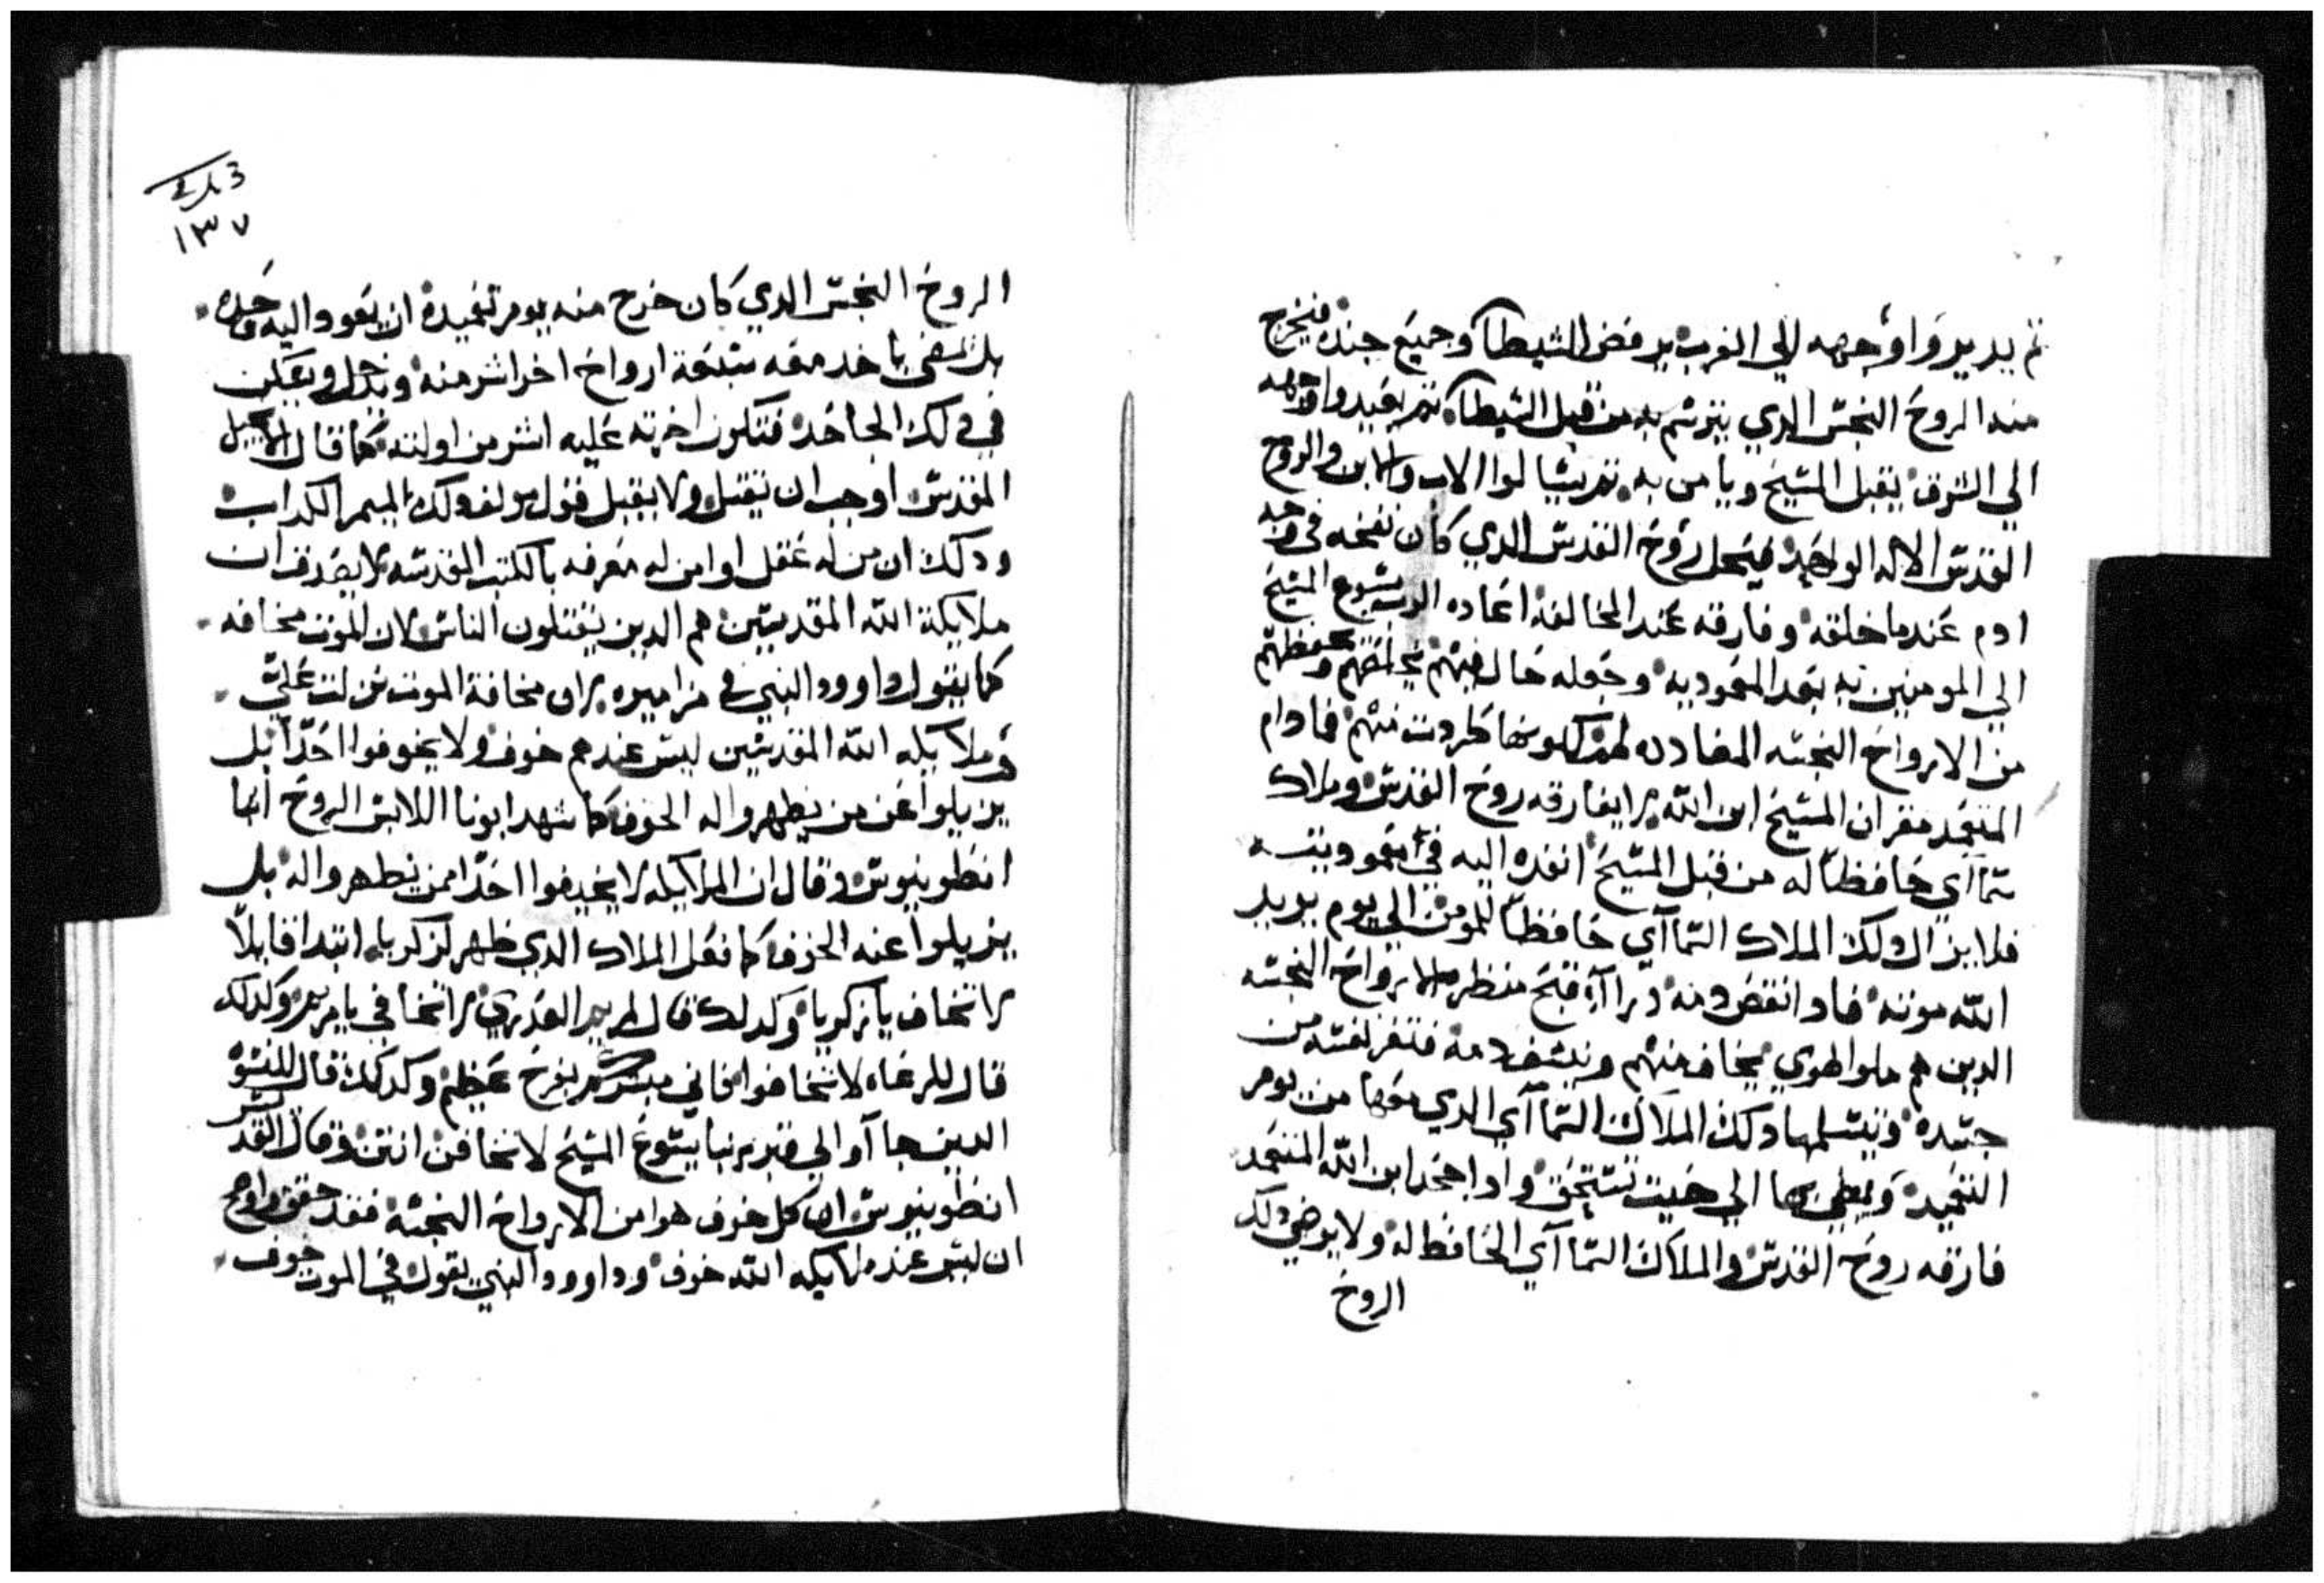 ثم يديروا وجهه الي الغرب يرفض الشيطان وجميع جنده فيخرج
منه الروح النجس الدي يترسم به من قبل الشيطان ثم يعيدوا وجهه
الي الشرق يقبل المسيح ويامن به ثم يتالوا الاب والابن والروح
القدس الاله الواحد فيحل روح القدس الدي كان نفخه في وجه
ادم عندما خلقه وفارقه عند المخالفه اعاده الرب يسوع المسيح
الي المومنين به بعد المعموديه وجعله حال فيهم يحرسهم ويحفظهم
من الارواح النجسه المضادده لهم لكونها طردت منهم فمادام
المتعمد مقر ان المسيح ابن الله لا يفارقه روح القدس وملاك
سماآي حافظا له من قبل المسيح انفده اليه في معموديته
فلا يزال دلك الملاك السماآي حافظا للمومن الي يوم يريد
الله موته فادا انقضي منه وراآه قبح منظر الارواح النجسه
الدين هم ملوا الهوي يخاف منهم وينشف دمه فتفر نفسه من
جسده وتيسلمها دلك الملاك السماآي الدي معها من يوم
التعميد ويمضي بها الي حيت تستحق وادا جحد ابن الله المتعمد
فارقه روح القدس والملاك السماآي الحافظ له ولا يرضي دلك
الروح
١٣٧
الروح النجس الدي كان خرج منه يوم تعميده ان يعود اليه وحده
بل يمضي ياخد معه سبعة ارواح اخر اشر منه ويدخل ويسكن
في دلك الجاحد فتكون اخرته عليه اشر من اولته كما قال الانجيل
المقدس اوجب ان يقتل ولا يقبل قول مولف دلك الميمر الكداب
ودلك ان من له عقل او من له معرفه بالكتب المقدسه لا يصدق ان
ملايكة الله المقدسين هم الدين يقتلون الناس لان الموت مخافه
كما يقول داوود النبي في مزاميره ان مخافة الموت نزلت علي
وملايكه الله المقدسين ليس عندهم خوف ولا يخوفوا احدا بل
يزيلوا عن من يظهروا له الخوف كما شهد ابونا اللابس الروح انبا
انطونيوس وقال ان الملايكه لا يخيفوا احدا ممن يظهروا له بل
يزيلوا عنه الخوف كما فعل الملاك الدي ظهر لزكريا ابتدا قايلا
لا تخاف يا زكريا وكدلك قال لمريم العدري لا تخافي يا مريم وكدلك
قال للرعاه لا تخافوا فاني مبشركم بفرح عظيم وكدلك قال للنسوه
الدين جاآو الي قبر ربنا يسوع المسيح لا تخافن انتن وقال القديس
انطونيوس ان كل خوف هو من الارواح النجسه فقد حقق واوضح
ان ليس عند ملايكه الله خوف وداوود النبي يقول في الموت خوف